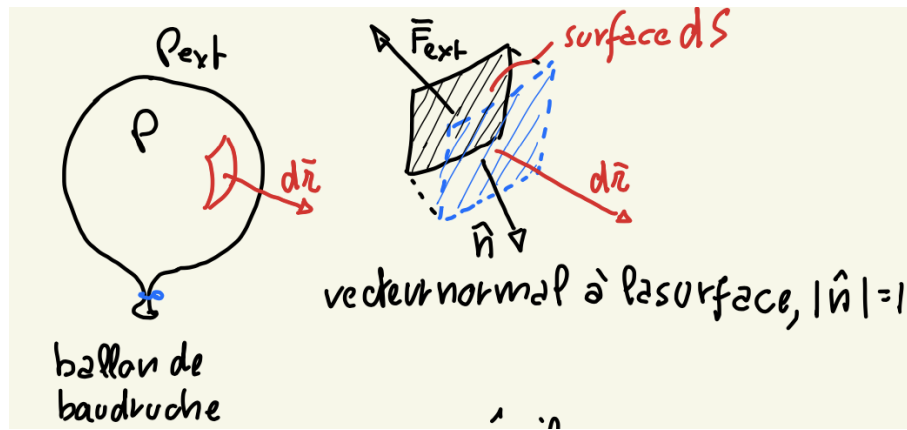 Pext
P
dr̄
ballon de
baudruche
F̄ext
surface dS
dr̄
n̂
vecteur normal à la surface, |n̂|=1